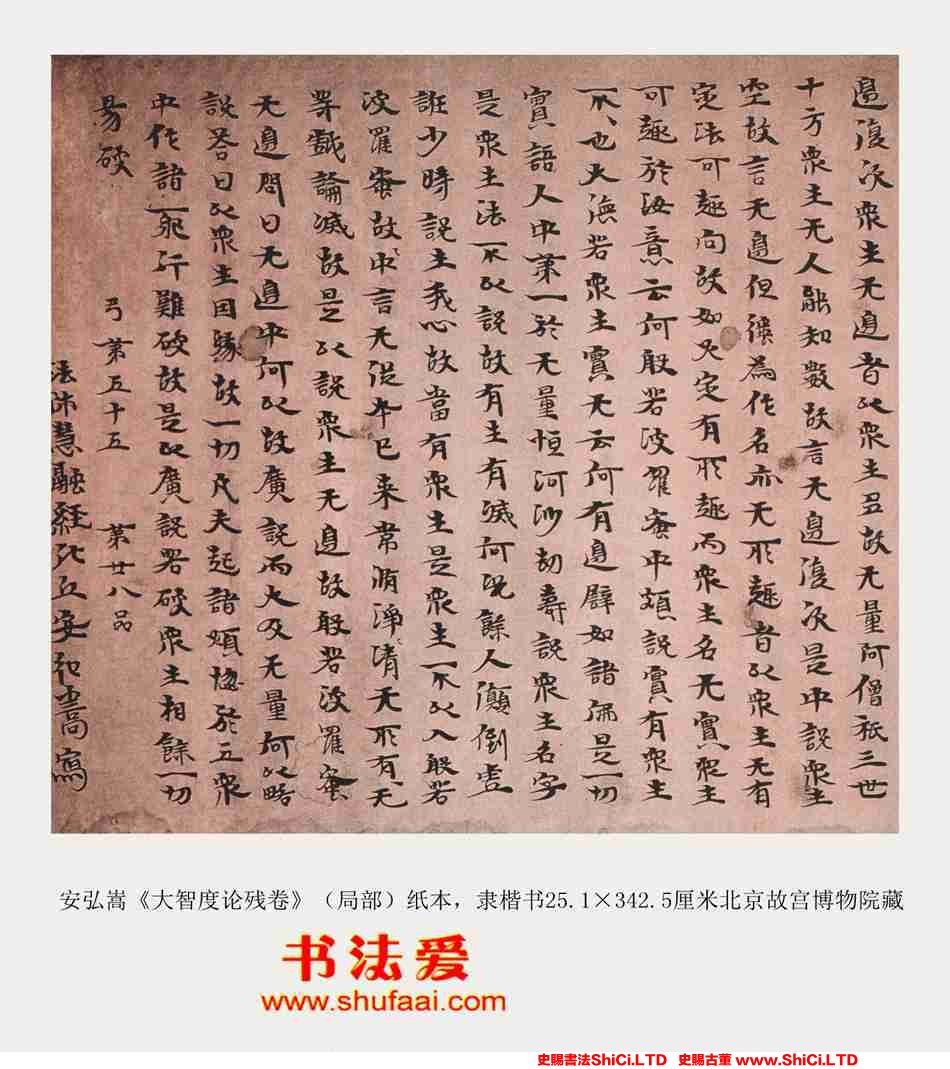 邊復次眾生无邊者以眾生多故无量阿僧祇三世
十方眾生无人能知數故言无邊復次是中說眾生
空故言无邊但強為作名亦无所趣者以眾生无有
定法可趣向故如火定有所趣而眾生名无實眾生
可趣於汝意云何般若波羅蜜中頗說實有眾生
不〻也大德若眾生實无云何有邊辟如諸佛是一切
實語人中第一於无量恒河沙劫壽說眾生名字
是眾生法不以說故有生有滅何況餘人顛倒虛
誑少時說生我心故當有眾生是眾生不以入般若
波羅蜜故中言无從本已来常清淨清无所有无
等戲論滅故是以說眾生无邊故般若波羅蜜
无邊問曰无邊中何以故廣說而大及无量何以略
說答曰以眾生因緣故一切凡夫起諸煩惱於五眾
中作諸耶行難破故是以廣說若破眾生相餘一切
易破
弓第五十五 第廿八品
法師慧融經比丘安弘嵩寫
安弘嵩《大智度论残卷》（局部）纸本，隶楷书25.1×342.5厘米北京故宫博物院藏
书法爱
www.shufaai.com
史賜書法ShiCi.LTD 史賜古董 www.ShiCi.LTD